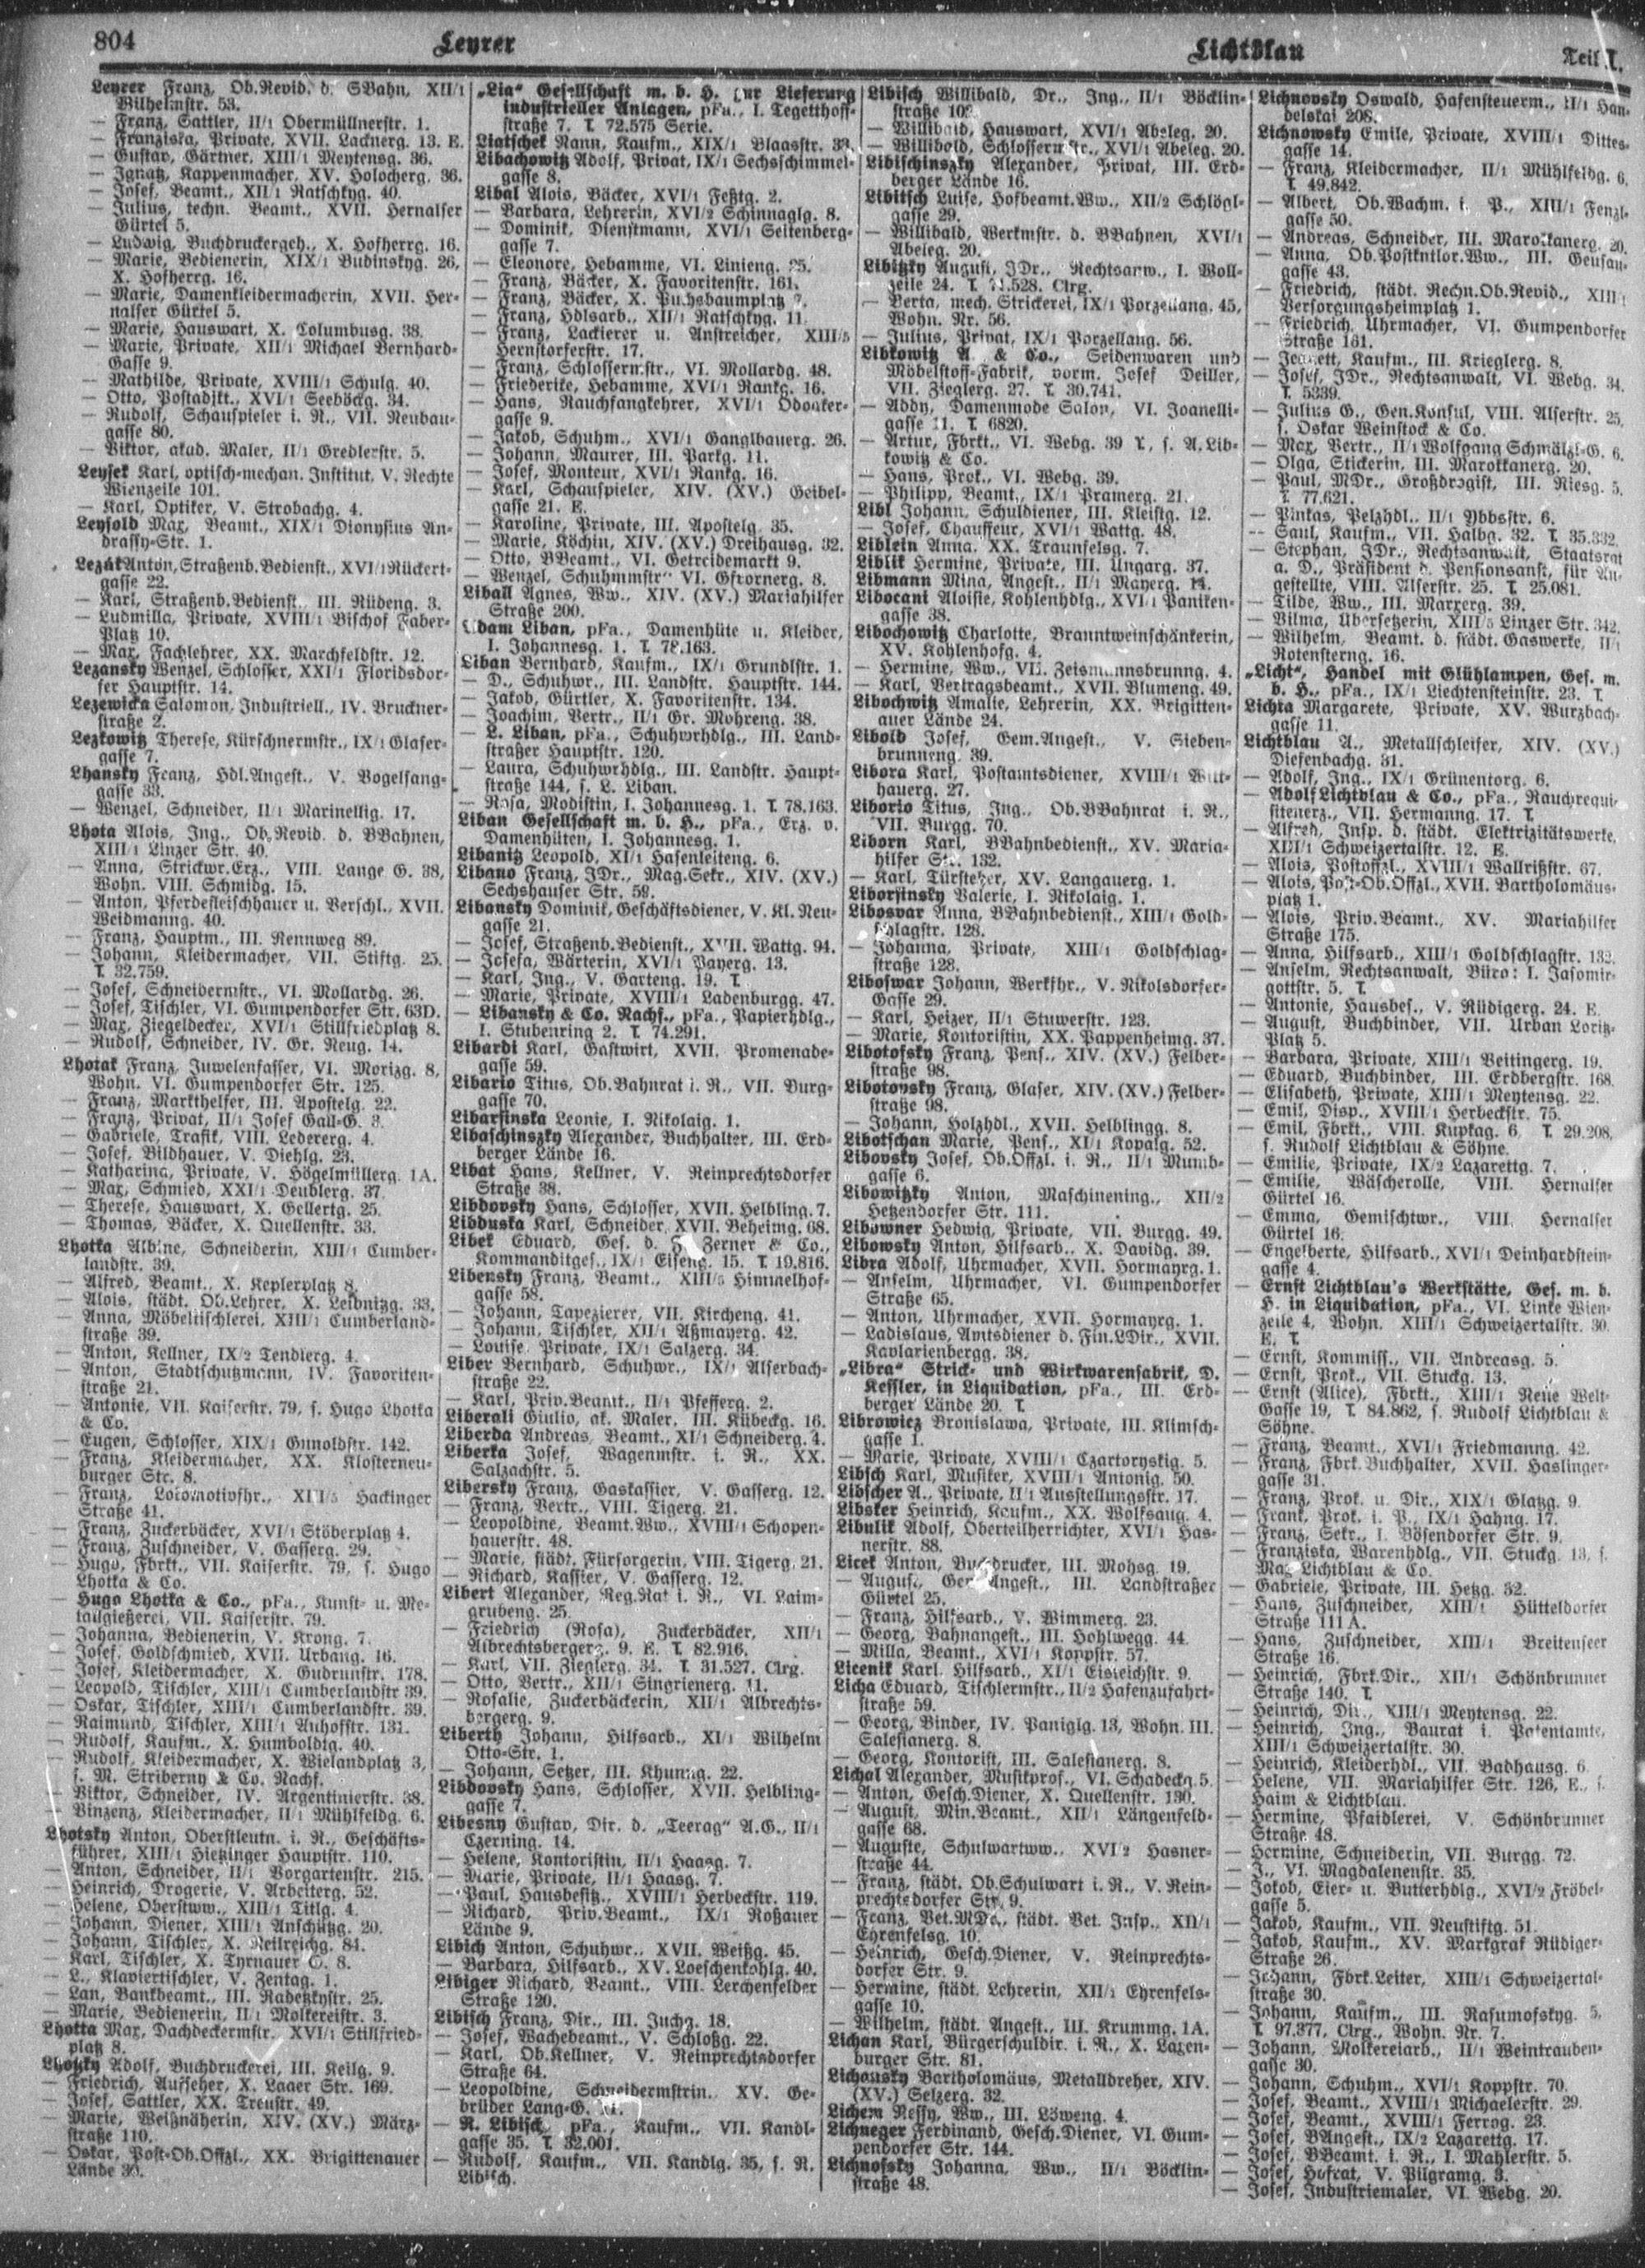 804
Leyrer
Lichtblau
Teil I.
Leyrer Franz, Ob.Revid. d. SBahn, XII/1
Wilhelmstr. 53.
— Franz, Sattler, II/1 Obermüllnerstr. 1.
— Franziska, Private, XVII. Lacknerg. 13. E.
— Gustav, Gärtner, XIII/1 Meytensg. 36.
— Ignatz, Kappenmacher, XV. Holocherg. 36.
— Josef, Beamt., XII/1 Ratschkyg. 40.
— Julius, techn. Beamt., XVII. Hernalser
Gürtel 5.
— Ludwig, Buchdruckergeh., X. Hofherrg. 16.
— Marie, Bedienerin, XIX/1 Budinskyg. 26,
X. Hofherrg. 16.
— Marie, Damenkleidermacherin, XVII. Her-
nalser Gürtel 5.
— Marie, Hauswart, X. Columbusg. 38.
— Marie, Private, XII/1 Michael Bernhard-
Gasse 9.
— Mathilde, Private, XVIII/1 Schulg. 40.
— Otto, Postadjkt., XVI/1 Seeböckg. 34.
— Rudolf, Schauspieler i. R., VII. Neubau-
gasse 80.
— Viktor, akad. Maler, II/1 Gredlerstr. 5.
Leysek Karl, optisch-mechan. Institut, V. Rechte
Wienzeile 101.
— Karl, Optiker, V. Strobachg. 4.
Leysold Max, Beamt., XIX/1 Dionysius An-
drassy-Str. 1.
Lezák Anton, Straßenb.Bedienst., XVI/1 Rückert-
gasse 22.
— Karl, Straßenb.Bedienst., III. Rüdeng. 3.
— Ludmilla, Private, XVIII/1 Bischof Faber-
Platz 10.
— Max, Fachlehrer, XX. Marchfeldstr. 12.
Lezansky Wenzel, Schlosser, XXI/1 Floridsdor-
fer Hauptstr. 14.
Lezewicka Salomon, Industriell., IV. Bruckner-
straße 2.
Lezkowitz Therese, Kürschnermstr., IX/1 Glaser-
gasse 7.
Lhansky Franz, Hdl.Angest., V. Vogelsang-
gasse 33.
— Wenzel, Schneider, II/1 Marinellig. 17.
Lhota Alois, Ing., Ob.Revid. d. BBahnen,
XIII/1 Linzer Str. 40.
— Anna, Strickwr.Erz., VIII. Lange G. 38,
Wohn. VIII. Schmidg. 15.
— Anton, Pferdefleischhauer u. Verschl., XVII.
Weidmanng. 40.
— Franz, Hauptm., III. Rennweg 89.
— Johann, Kleidermacher, VII. Stiftg. 25.
T. 32.759.
— Josef, Schneidermstr., VI. Mollardg. 26.
— Josef, Tischler, VI. Gumpendorfer Str. 63D.
— Max, Ziegeldecker, XVI/1 Stillfriedplatz 8.
— Rudolf, Schneider, IV. Gr. Neug. 14.
Lhotak Franz, Juwelenfasser, VI. Morizg. 8,
Wohn. VI. Gumpendorfer Str. 125.
— Franz, Markthelfer, III. Apostelg. 22.
— Franz, Privat, II/1 Josef Gall-G. 3.
— Gabriele, Trafik, VIII. Ledererg. 4.
— Josef, Bildhauer, V. Diehlg. 23.
— Katharina, Private, V. Högelmüllerg. 1A.
— Max, Schmied, XXI/1 Deublerg. 37.
— Therese, Hauswart, X. Gellertg. 25.
— Thomas, Bäcker, X. Quellenstr. 33.
Lhotka Albine, Schneiderin, XIII/1 Cumber-
landstr. 39.
— Alfred, Beamt., X. Keplerplatz 8.
— Alois, städt. Ob.Lehrer, X. Leibnitzg. 33.
— Anna, Möbeltischlerei, XIII/1 Cumberland-
straße 39.
— Anton, Kellner, IX/2 Tendlerg. 4.
— Anton, Stadtschutzmann, IV. Favoriten-
straße 21.
— Antonie, VII. Kaiserstr. 79, s. Hugo Lhotka
& Co.
— Eugen, Schlosser, XIX/1 Gunoldstr. 142.
— Franz, Kleidermacher, XX. Klosterneu-
burger Str. 8.
— Franz, Lokomotivfhr., XIII/5 Hackinger
Straße 41.
— Franz, Zuckerbäcker, XVI/1 Stöberplatz 4.
— Franz, Zuschneider, V. Gasserg. 29.
— Hugo, Fbrkt., VII. Kaiserstr. 79, s. Hugo
Lhotka & Co.
— Hugo Lhotka & Co., pFa., Kunst- u. Me-
tallgießerei, VII. Kaiserstr. 79.
— Johanna, Bedienerin, V. Krong. 7.
— Josef, Goldschmied, XVII. Urbang. 16.
— Josef, Kleidermacher, X. Gudrunstr. 178.
— Leopold, Tischler, XIII/1 Cumberlandstr 39.
— Oskar, Tischler, XIII/1 Cumberlandstr. 39.
— Raimund, Tischler, XIII/1 Auhofstr. 131.
— Rudolf, Kaufm., X. Humboldtg. 40.
— Rudolf, Kleidermacher, X. Wielandplatz 3,
s. M. Striberny & Co. Nachf.
— Viktor, Schneider, IV. Argentinierstr. 38.
— Vinzenz, Kleidermacher, II/1 Mühlfeldg. 6.
Lhotsky Anton, Oberstleutn. i. R., Geschäfts-
führer, XIII/1 Hietzinger Hauptstr. 110.
— Anton, Schneider, II/1 Vorgartenstr. 215.
— Heinrich, Drogerie, V. Arbeiterg. 52.
— Helene, Oberstww., XIII/1 Titlg. 4.
— Johann, Diener, XIII/1 Anschützg. 20.
— Johann, Tischler, X. Neilreichg. 84.
— Karl, Tischler, X. Tyrnauer G. 8.
— L., Klaviertischler, V. Zentag. 1.
— Lan, Bankbeamt., III. Radetzkystr. 25.
— Marie, Bedienerin, II/1 Molkereistr. 3.
Lhotta Max, Dachdeckermstr., XVI/1 Stillfried-
platz 8.
Lhotzky Adolf, Buchdruckerei, III. Keilg. 9.
— Friedrich, Aufseher, X. Laaer Str. 169.
— Josef, Sattler, XX. Treustr. 49.
— Marie, Weißnäherin, XIV. (XV.) März-
straße 110.
— Oskar, Post-Ob.Offzl., XX. Brigittenauer
Lände 30.
„Lia“ Gesellschaft m. b. H. zur Lieferung
industrieller Anlagen, pFa., I. Tegetthoff-
straße 7. T. 72.575 Serie.
Liatschek Nann, Kaufm., XIX/1 Blaasstr. 33.
Libachowitz Adolf, Privat, IX/1 Sechsschimmel-
gasse 8.
Libal Alois, Bäcker, XVI/1 Feßtg. 2.
— Barbara, Lehrerin, XVI/2 Schinnaglg. 8.
— Dominik, Dienstmann, XVI/1 Seitenberg-
gasse 7.
— Eleonore, Hebamme, VI. Linieng. 25.
— Franz, Bäcker, X. Favoritenstr. 161.
— Franz, Bäcker, X. Puchsbaumplatz 7.
— Franz, Hdlsarb., XII/1 Ratschkyg. 11.
— Franz, Lackierer u. Anstreicher, XIII/5
Hernstorferstr. 17.
— Franz, Schlossermstr., VI. Mollardg. 48.
— Friederike, Hebamme, XVI/1 Rankg. 16.
— Hans, Rauchfangkehrer, XVI/1 Odoaker-
gasse 9.
— Jakob, Schuhm., XVI/1 Ganglbauerg. 26.
— Johann, Maurer, III. Parkg. 11.
— Josef, Monteur, XVI/1 Rankg. 16.
— Karl, Schauspieler, XIV. (XV.) Geibel-
gasse 21. E.
— Karoline, Private, III. Apostelg. 35.
— Marie, Köchin, XIV. (XV.) Dreihausg. 32.
— Otto, BBeamt., VI. Getreidemarkt 9.
— Wenzel, Schuhmmstr. VI. Gfrornerg. 8.
Liball Agnes, Ww., XIV. (XV.) Mariahilfer
Straße 200.
Liban, pFa., Damenhüte u. Kleider,
I. Johannesg. 1. T. 78.163.
Liban Bernhard, Kaufm., IX/1 Grundlstr. 1.
— D., Schuhwr., III. Landstr. Hauptstr. 144.
— Jakob, Gürtler, X. Favoritenstr. 134.
— Joachim, Vertr., II/1 Gr. Mohreng. 38.
— L. Liban, pFa., Schuhwrhdlg., III. Land-
straßer Hauptstr. 120.
— Laura, Schuhwrhdlg., III. Landstr. Haupt-
straße 144, s. L. Liban.
— Rosa, Modistin, I. Johannesg. 1. T. 78.163.
Liban Gesellschaft m. b. H., pFa., Erz. v.
Damenhüten, I. Johannesg. 1.
Libanitz Leopold, XI/1 Hasenleiteng. 6.
Libano Franz, JDr., Mag.Sekr., XIV. (XV.)
Sechshauser Str. 59.
Libansky Dominik, Geschäftsdiener, V. Kl. Neu-
gasse 21.
— Josef, Straßenb.Bedienst., XVII. Wattg. 94.
— Josefa, Wärterin, XVI/1 Payerg. 13.
— Karl, Ing., V. Garteng. 19. T.
— Marie, Private, XVIII/1 Ladenburgg. 47.
— Libansky & Co. Nachf., pFa., Papierhdlg.,
I. Stubenring 2. T. 74.291.
Libardi Karl, Gastwirt, XVII. Promenade-
gasse 59.
Libario Titus, Ob.Bahnrat i. R., VII. Burg-
gasse 70.
Libarsinska Leonie, I. Nikolaig. 1.
Libaschinszky Alexander, Buchhalter, III. Erd-
berger Lände 16.
Libat Hans, Kellner, V. Reinprechtsdorfer
Straße 38.
Libdovsky Hans, Schlosser, XVII. Helbling. 7.
Libduska Karl, Schneider, XVII. Beheimg. 68.
Libek Eduard, Ges. d. F. Zerner & Co.,
Kommanditges., IX/1 Eiseng. 15. T. 19.816.
Libensky Franz, Beamt., XIII/5 Himmelhof-
gasse 58.
— Johann, Tapezierer, VII. Kircheng. 41.
— Johann, Tischler, XII/1 Aßmayerg. 42.
— Louise, Private, IX/1 Salzerg. 34.
Liber Bernhard, Schuhwr., IX/1 Alserbach-
straße 22.
— Karl, Priv.Beamt., II/1 Pfefferg. 2.
Liberali Giulio, ak. Maler, III. Kübeckg. 16.
Liberda Andreas, Beamt., XI/1 Schneiderg. 4.
Liberka Josef, Wagenmstr. i. R., XX.
Salzachstr. 5.
Libersky Franz, Gaskassier, V. Gasserg. 12.
— Franz, Vertr., VIII. Tigerg. 21.
— Leopoldine, Beamt.Ww., XVIII/1 Schopen-
hauerstr. 48.
— Marie, städt. Fürsorgerin, VIII. Tigerg. 21.
— Richard, Kassier, V. Gasserg. 12.
Libert Alexander, Reg.Rat i. R., VI. Laim-
grubeng. 25.
— Friedrich (Rosa), Zuckerbäcker, XII/1
Albrechtsbergerg. 9. E. T. 82.916.
— Karl, VII. Zieglerg. 34. T. 31.527. Clrg.
— Otto, Vertr., XII/1 Singrienerg. 11.
— Rosalie, Zuckerbäckerin, XII/1 Albrechts-
bergerg. 9.
Liberth Johann, Hilfsarb., XI/1 Wilhelm
Otto-Str. 1.
— Johann, Setzer, III. Khunng. 22.
Libdovsky Hans, Schlosser, XVII. Helbling-
gasse 7.
Libesny Gustav, Dir. d. „Teerag“ A.G., II/1
Czerning. 14.
— Helene, Kontoristin, II/1 Haasg. 7.
— Marie, Private, II/1 Haasg. 7.
— Paul, Hausbesitz., XVIII/1 Herbeckstr. 119.
— Richard, Priv.Beamt., IX/1 Roßauer
Lände 9.
Libich Anton, Schuhwr., XVII. Weißg. 45.
— Barbara, Hilfsarb., XV. Loeschenkohlg. 40.
Libiger Richard, Beamt., VIII. Lerchenfelder
Straße 120.
Libisch Franz, Dir., III. Juchg. 18.
— Josef, Wachebeamt., V. Schloßg. 22.
— Karl, Ob.Kellner, V. Reinprechtsdorfer
Straße 64.
— Leopoldine, Schneidermstrin. XV. Ge-
brüder Lang-G.
— R. Libisch, pFa., Kaufm., VII. Kandl-
gasse 35. T. 32.001.
— Rudolf, Kaufm., VII. Kandlg. 35, s. R.
Libisch.
Libisch Willibald, Dr., Ing., II/1 Böcklin-
straße 102.
— Willibald, Hauswart, XVI/1 Abeleg. 20.
— Willibald, Schlossermstr., XVI/1 Abeleg. 20.
Libischinszky Alexander, Privat, III. Erd-
berger Lände 16.
Libitsch Luise, Hofbeamt.Ww., XII/2 Schlögl-
gasse 29.
— Willibald, Werkmstr. d. BBahnen, XVI/1
Abeleg. 20.
Libitzky August, JDr., Rechtsanw., I. Woll-
zeile 24. T. 71.528. Clrg.
— Berta, mech. Strickerei, IX/1 Porzellang. 45,
Wohn. Nr. 56.
— Julius, Privat, IX/1 Porzellang. 56.
Libkowitz A. & Co., Seidenwaren und
Möbelstoff-Fabrik, vorm. Josef Deiller,
VII. Zieglerg. 27. T. 30.741.
— Addy, Damenmode Salon, VI. Joanelli-
gasse 11. T. 6820.
— Artur, Fbrkt., VI. Webg. 39 T., s. A. Lib-
kowitz & Co.
— Hans, Prok., VI. Webg. 39.
— Philipp, Beamt., IX/1 Pramerg. 21.
Libl Johann, Schuldiener, III. Kleistg. 12.
— Josef, Chauffeur, XVI/1 Wattg. 48.
Liblein Anna, XX. Traunfelsg. 7.
Liblik Hermine, Private, III. Ungarg. 37.
Libmann Mina, Angest., II/1 Mayerg. 14.
Libocani Aloisie, Kohlenhdlg., XVI/1 Paniken-
gasse 38.
Libochowitz Charlotte, Branntweinschänkerin,
XV. Kohlenhofg. 4.
— Hermine, Ww., VII. Zeismannsbrunng. 4.
— Karl, Vertragsbeamt., XVII. Blumeng. 49.
Libochwitz Amalie, Lehrerin, XX. Brigitten-
auer Lände 24.
Libold Josef, Gem.Angest., V. Sieben-
brunneng. 39.
Libora Karl, Postamtsdiener, XVIII/1 Witt-
hauerg. 27.
Liborio Titus, Ing., Ob.BBahnrat i. R.,
VII. Burgg. 70.
Liborn Karl, BBahnbedienst., XV. Maria-
hilfer Str. 132.
— Karl, Türsteher, XV. Langauerg. 1.
Liborsinsky Valerie, I. Nikolaig. 1.
Libosvar Anna, BBahnbedienst., XIII/1 Gold-
schlagstr. 128.
— Johanna, Private, XIII/1 Goldschlag-
straße 128.
Liboswar Johann, Werkfhr., V. Nikolsdorfer-
Gasse 29.
— Karl, Heizer, II/1 Stuwerstr. 123.
— Marie, Kontoristin, XX. Pappenheimg. 37.
Libotofsky Franz, Pens., XIV. (XV.) Felber-
straße 98.
Libotovsky Franz, Glaser, XIV. (XV.) Felber-
straße 98.
— Johann, Holzhdl., XVII. Helblingg. 8.
Libotschan Marie, Pens., XI/1 Kopalg. 52.
Libovsky Josef, Ob.Offzl. i. R., II/1 Mumb-
gasse 6.
Libowitzky Anton, Maschinening., XII/2
Hetzendorfer Str. 111.
Libowner Hedwig, Private, VII. Burgg. 49.
Libowsky Anton, Hilfsarb., X. Davidg. 39.
Libra Adolf, Uhrmacher, XVII. Hormayrg. 1.
— Anselm, Uhrmacher, VI. Gumpendorfer
Straße 65.
— Anton, Uhrmacher, XVII. Hormayrg. 1.
— Ladislaus, Amtsdiener d. Fin.LDir., XVII.
Kavlarienbergg. 38.
„Libra“ Strick- und Wirkwarenfabrik, D.
Kessler, in Liquidation, pFa., III. Erd-
berger Lände 20. T.
Librowicz Bronislawa, Private, III. Klimsch-
gasse 1.
— Marie, Private, XVIII/1 Czartoryskig. 5.
Libsch Karl, Musiker, XVIII/1 Antonig. 50.
Libscher A., Private, II/1 Ausstellungsstr. 17.
Libsker Heinrich, Kaufm., XX. Wolfsaug. 4.
Libulik Adolf, Oberteilherrichter, XVI/1 Has-
nerstr. 88.
Licek Anton, Buchdrucker, III. Mohsg. 19.
— August, Gem.Angest., III. Landstraßer
Gürtel 25.
— Franz, Hilfsarb., V. Wimmerg. 23.
— Georg, Bahnangest., III. Hohlwegg. 44.
— Milla, Beamt., XVI/1 Koppstr. 57.
Licenik Karl, Hilfsarb., XI/1 Eisteichstr. 9.
Licha Eduard, Tischlermstr., II/2 Hafenzufahrt-
straße 59.
— Georg, Binder, IV. Paniglg. 13, Wohn. III.
Salesianerg. 8.
— Georg, Kontorist, III. Salesianerg. 8.
Lichal Alexander, Musikprof., VI. Schadeckg. 5.
— Anton, Gesch.Diener, X. Quellenstr. 130.
— August, Min.Beamt., XII/1 Längenfeld-
gasse 68.
— Auguste, Schulwartww., XVI/2 Hasner-
straße 44.
— Franz, städt. Ob.Schulwart i. R., V. Rein-
prechtsdorfer Str. 9.
— Franz, Vet.MDr., städt. Vet. Insp., XII/1
Ehrenfelsg. 10.
— Heinrich, Gesch.Diener, V. Reinprechts-
dorfer Str. 9.
— Hermine, städt. Lehrerin, XII/1 Ehrenfels-
gasse 10.
— Wilhelm, städt. Angest., III. Krummg. 1A.
Lichan Karl, Bürgerschuldir. i. R., X. Laxen-
burger Str. 81.
Lichansky Bartholomäus, Metalldreher, XIV.
(XV.) Selzerg. 32.
Lichem Nessy, Ww., III. Löweng. 4.
Lichneger Ferdinand, Gesch.Diener, VI. Gum-
pendorfer Str. 144.
Lichnofsky Johanna, Ww., II/1 Böcklin-
straße 48.
Lichnovsky Oswald, Hafensteuerm., II/1 Han-
delskai 208.
Lichnowsky Emile, Private, XVIII/1 Dittes-
gasse 14.
— Franz, Kleidermacher, II/1 Mühlfeldg. 6.
T. 49.842.
— Albert, Ob.Wachm. i. P., XIII/1 Fenzl-
gasse 50.
— Andreas, Schneider, III. Marokkanerg. 20.
— Anna, Ob.Postkntlor.Ww., III. Geusau-
gasse 43.
— Friedrich, städt. Rechn.Ob.Revid., XIII/1
Versorgungsheimplatz 1.
— Friedrich, Uhrmacher, VI. Gumpendorfer
Straße 161.
— Jeanett, Kaufm., III. Krieglerg. 8.
— Josef, JDr., Rechtsanwalt, VI. Webg. 34.
T. 5339.
— Julius G., Gen.Konsul, VIII. Alserstr. 25,
s. Oskar Weinstock & Co.
— Max, Vertr., II/1 Wolfgang Schmälzl-G. 6.
— Olga, Stickerin, III. Marokkanerg. 20.
— Paul, MDr., Großdrogist, III. Riesg. 5.
T. 77.621.
— Pinkas, Pelzhdl., II/1 Ybbsstr. 6.
— Saul, Kaufm., VII. Halbg. 32. T. 35.332.
— Stephan, JDr., Rechtsanwalt, Staatsrat
a. D., Präsident d. Pensionsanst. für An-
gestellte, VIII. Alserstr. 25. T. 25.081.
— Tilde, Ww., III. Marxerg. 39.
— Vilma, Übersetzerin, XIII/5 Linzer Str. 342.
— Wilhelm, Beamt. d. städt. Gaswerke, II/1
Rotensterng. 16.
„Licht“, Handel mit Glühlampen, Ges. m.
b. H., pFa., IX/1 Liechtensteinstr. 23. T.
Lichta Margarete, Private, XV. Wurzbach-
gasse 11.
Lichtblau A., Metallschleifer, XIV. (XV.)
Diefenbachg. 31.
— Adolf, Ing., IX/1 Grünentorg. 6.
— Adolf Lichtblau & Co., pFa., Rauchrequi-
sitenerz., VII. Hermanng. 17. T.
— Alfred, Insp. d. städt. Elektrizitätswerke,
XIII/1 Schweizertalstr. 12. E.
— Alois, Postoffzl., XVIII/1 Wallrißstr. 67.
— Alois, Post-Ob.Offzl., XVII. Bartholomäus-
platz 1.
— Alois, Priv.Beamt., XV. Mariahilfer
Straße 175.
— Anna, Hilfsarb., XIII/1 Goldschlagstr. 132.
— Anselm, Rechtsanwalt, Büro: I. Jasomir-
gottstr. 5. T.
— Antonie, Hausbes., V. Rüdigerg. 24. E.
— August, Buchbinder, VII. Urban Loritz-
Platz 5.
— Barbara, Private, XIII/1 Veitingerg. 19.
— Eduard, Buchbinder, III. Erdbergstr. 168.
— Elisabeth, Private, XIII/1 Meytensg. 22.
— Emil, Disp., XVIII/1 Herbeckstr. 75.
— Emil, Fbrkt., VIII. Kupkag. 6. T. 29.208,
s. Rudolf Lichtblau & Söhne.
— Emilie, Private, IX/2 Lazarettg. 7.
— Emilie, Wäscherolle, VIII. Hernalser
Gürtel 16.
— Emma, Gemischtwr., VIII. Hernalser
Gürtel 16.
— Engelberte, Hilfsarb., XVI/1 Deinhardstein-
gasse 4.
— Ernst Lichtblau's Werkstätte, Ges. m. b.
H. in Liquidation, pFa., VI. Linke Wien-
zeile 4, Wohn. XIII/1 Schweizertalstr. 30.
E. T.
— Ernst, Kommiss., VII. Andreasg. 5.
— Ernst, Prok., VII. Stuckg. 13.
— Ernst (Alice), Fbrkt., XIII/1 Neue Welt-
Gasse 19, T. 84.862, s. Rudolf Lichtblau &
Söhne.
— Franz, Beamt., XVI/1 Friedmanng. 42.
— Franz, Fbrk.Buchhalter, XVII. Haslinger-
gasse 31.
— Franz, Prok. u. Dir., XIX/1 Glatzg. 9.
— Frank, Prok. i. P., IX/1 Hahng. 17.
— Franz, Sekr., I. Bösendorfer Str. 9.
— Franziska, Warenhdlg., VII. Stuckg. 13, s.
Max Lichtblau & Co.
— Gabriele, Private, III. Hetzg. 32.
— Hans, Zuschneider, XIII/1 Hütteldorfer
Straße 111 A.
— Hans, Zuschneider, XIII/1 Breitenseer
Straße 16.
— Heinrich, Fbrk.Dir., XII/1 Schönbrunner
Straße 140. T.
— Heinrich, Dir., XIII/1 Meytensg. 22.
— Heinrich, Ing., Baurat i. Patentamte,
XIII/1 Schweizertalstr. 30.
— Heinrich, Kleiderhdl., VII. Badhausg. 6
— Helene, VII. Mariahilfer Str. 126, E., s.
Haim & Lichtblau.
— Hermine, Pfaidlerei, V. Schönbrunner
Straße 48.
— Hermine, Schneiderin, VII. Burgg. 72.
— J., VI. Magdalenenstr. 35.
— Jakob, Eier- u. Butterhdlg., XVI/2 Fröbel-
gasse 5.
— Jakob, Kaufm., VII. Neustiftg. 51.
— Jakob, Kaufm., XV. Markgraf Rüdiger-
Straße 26.
— Johann, Fbrk.Leiter, XIII/1 Schweizertal-
straße 30.
— Johann, Kaufm., III. Rasumofskyg. 5,
T. 97.377, Clrg., Wohn. Nr. 7.
— Johann, Molkereiarb., II/1 Weintrauben-
gasse 30.
— Johann, Schuhm., XVI/1 Koppstr. 70.
— Josef, Beamt., XVIII/1 Michaelerstr. 29.
— Josef, Beamt., XVIII/1 Ferrog. 23.
— Josef, BAngest., IX/2 Lazarettg. 17.
— Josef, BBeamt. i. R., I. Mahlerstr. 5.
— Josef, Hofrat, V. Pilgramg. 3.
— Josef, Industriemaler, VI. Webg. 20.